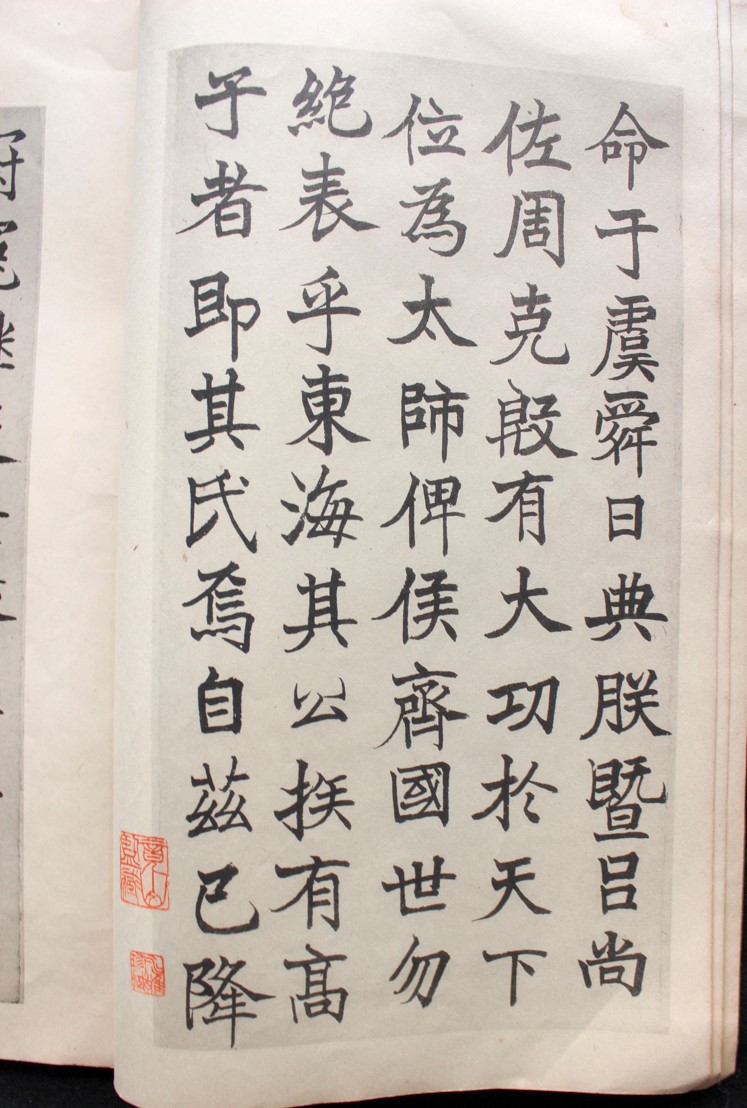 命于虞舜日典朕暨呂尚
佐周克殷有大功於天下
位為太師俾侯齊國世勿
絶表乎東海其公族有高
子者即其氏焉自茲已降